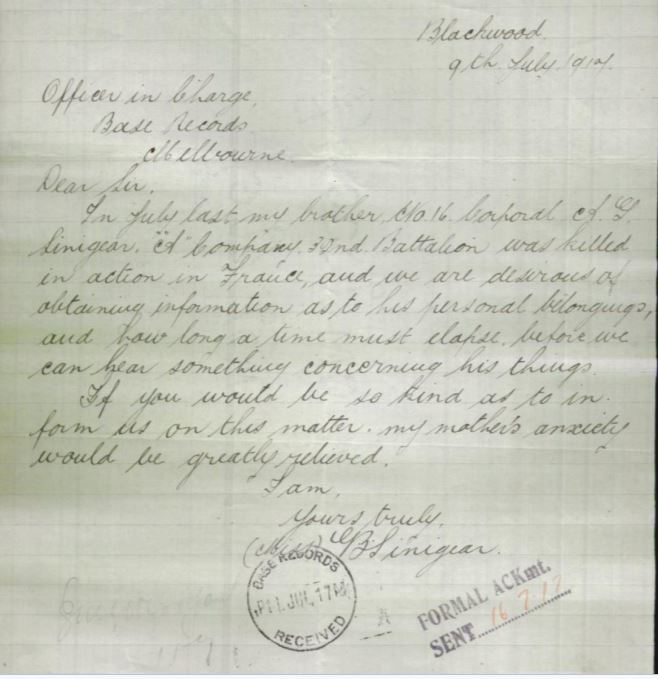 Blackwood.
9th. July. 1917.
Officer in Charge,
Base Records
Melbourne.
Dear Sir.
In July last my brother, No. 16. Corporal A. G.
Sinigear. "A" Company. 32nd. Battalion was killed
in action in France, and we are desirous of
obtaining information as to his personal belongings,
and how long a time must elapse, before we
can hear something concerning his things.
If you would be so kind as to in-
form us on this matter. my mother's anxiety
would be greatly relieved.
I am,
Yours truly,
(Miss) B Sinigear.
BASE RECORDS
11 JUL 17
RECEIVED
A
FORMAL ACKmt.
SENT 16 7 17